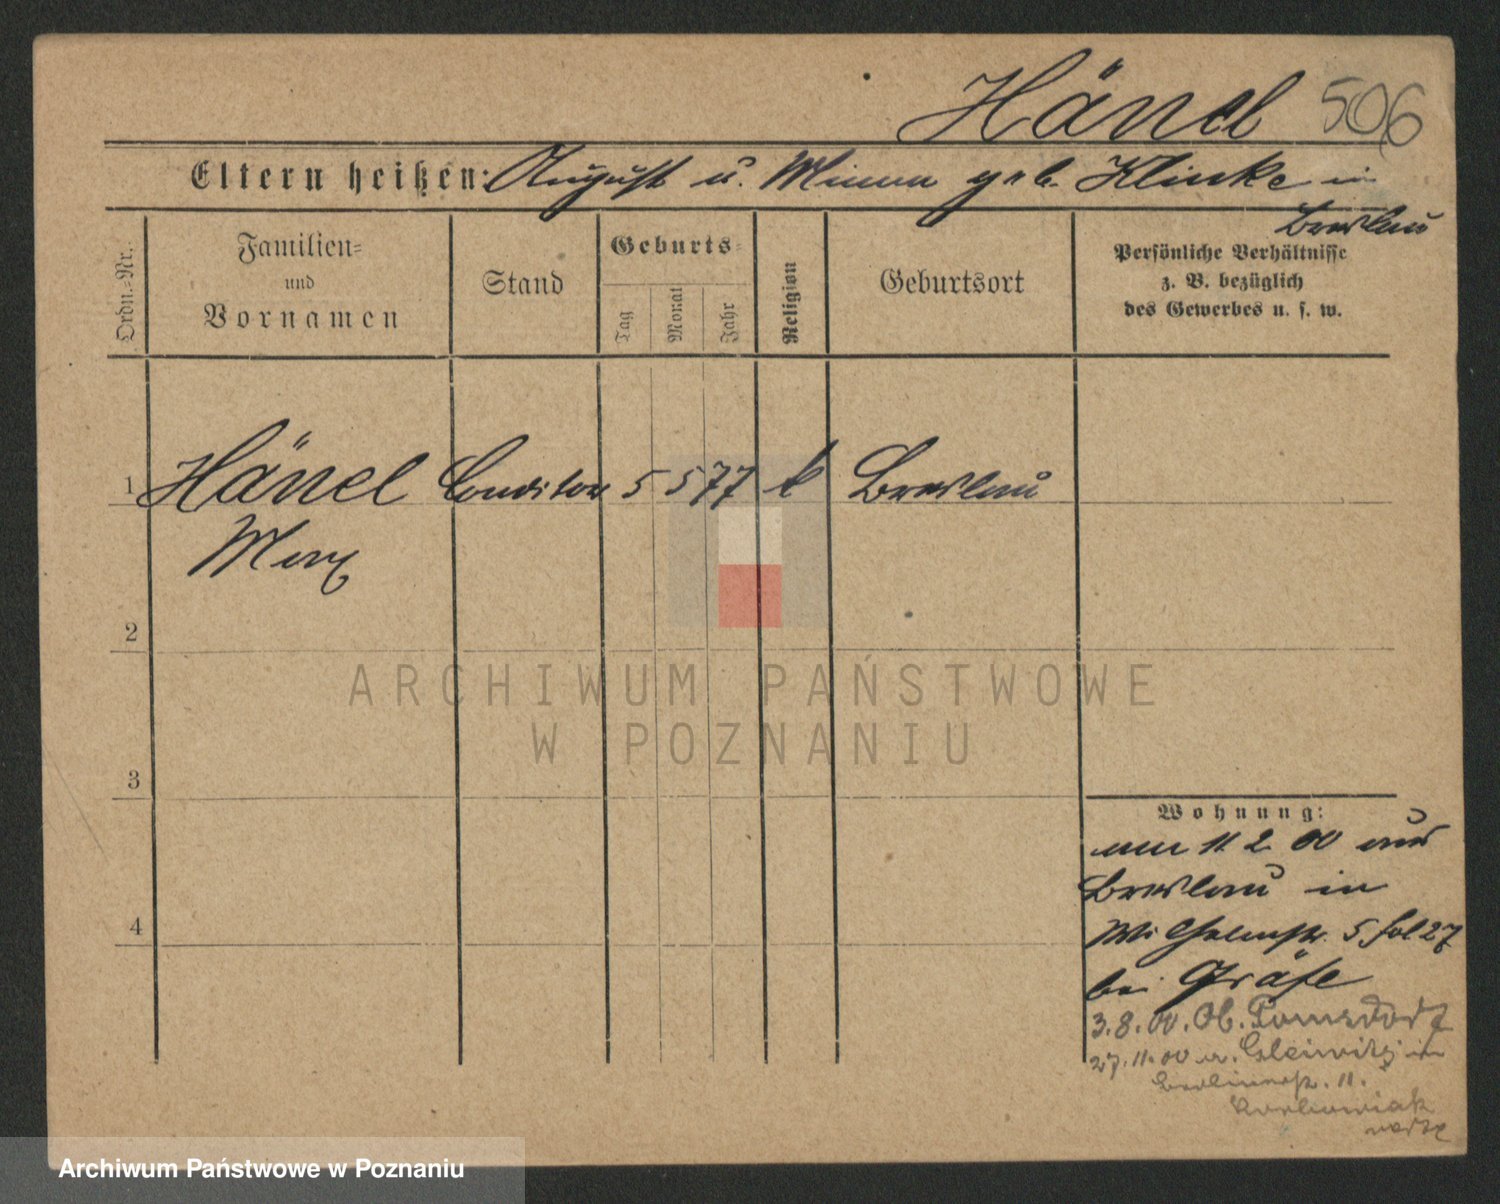 Hänel 506
Eltern heißen: August u. Minna geb. Klinke in
Breslau
Ordn.-Nr.
Familien- und Vornamen
Stand
Geburts-
Tag Monat Jahr
Religion
Geburtsort
Persönliche Verhältnisse
z. B. bezüglich
des Gewerbes u. s. w.
1 Hänel Conditor 5 5 77 k Breslau
Max
2
3
4
Wohnung:
am 11 2 00 aus
Breslau in
Wilhelmstr. 5 fol 27
bei Gräfe
3.8.00. Ob.
27.11.00 v. Gleiwitz in
Berlinerstr. 11.
ARCHIWUM PAŃSTWOWE
W POZNANIU
Archiwum Państwowe w Poznaniu